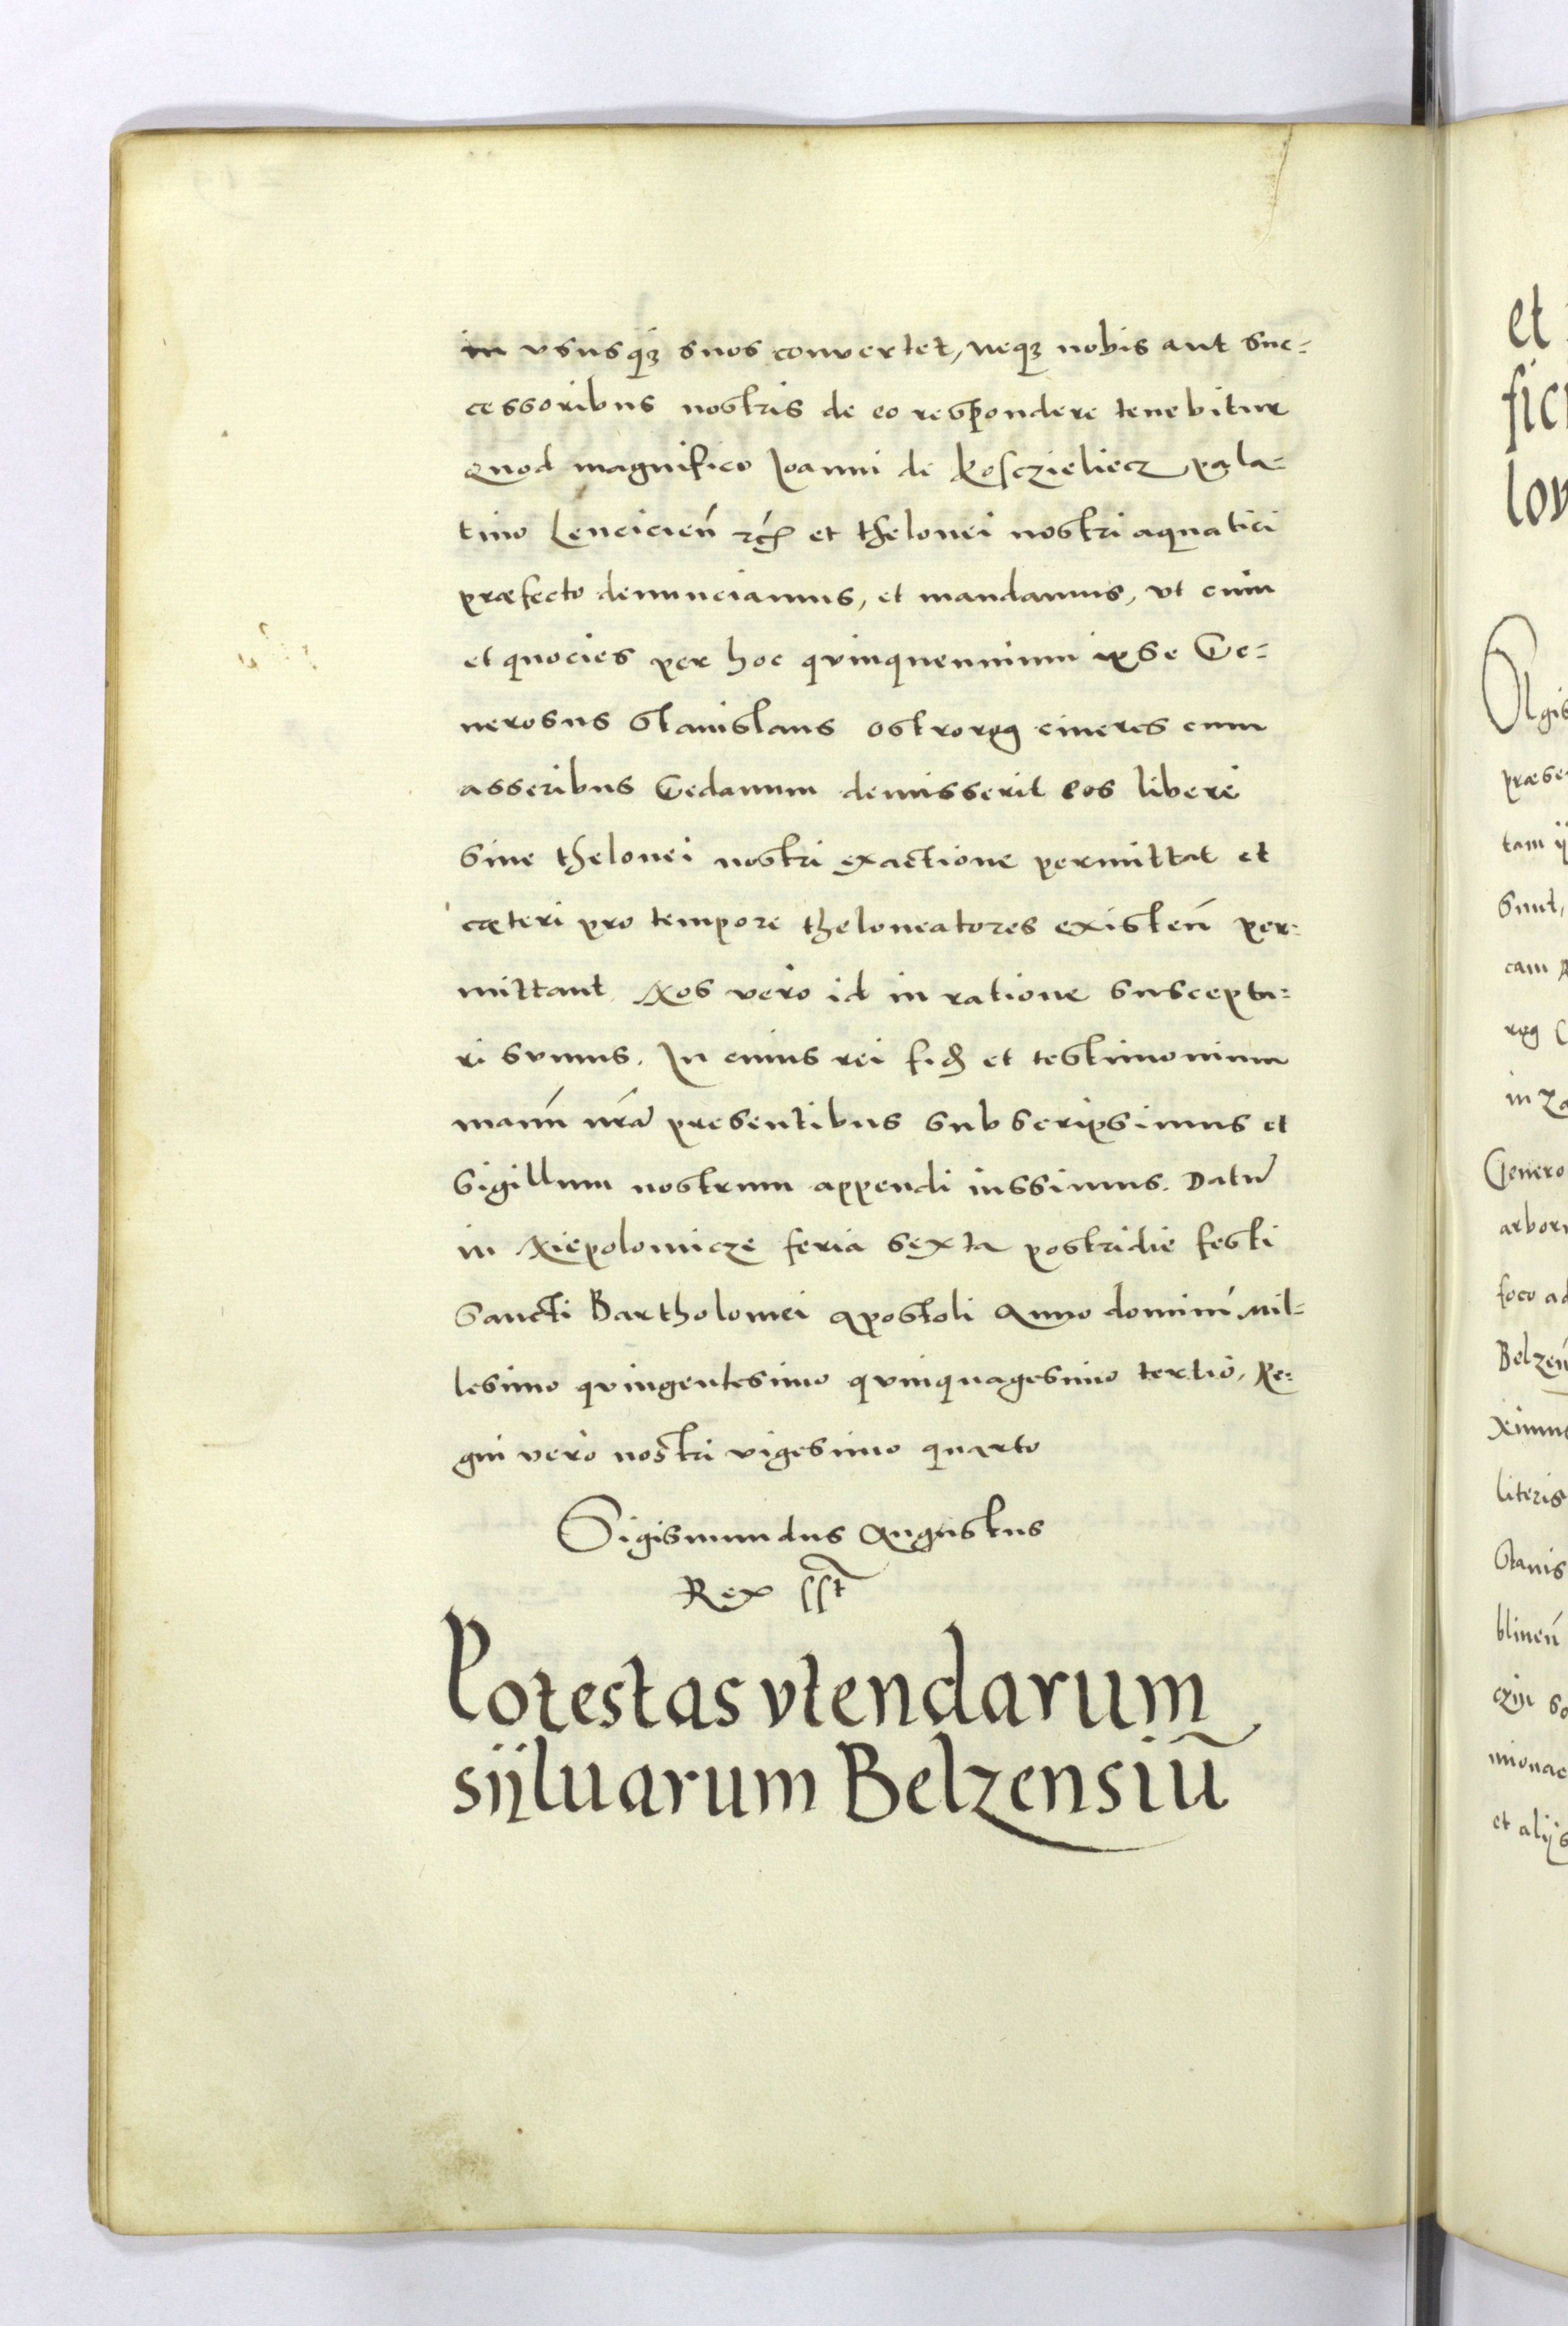 in vsusq3 suos convertet, neq3 nobis aut suc=
cessoribus nostris de eo respondere tenebitur
Quod magnifico Joanni de Kosczieliecz pala=
tino Lencicień etc et thelonei nostri aquatici
præfecto denunciamus, et mandamus, vt cum
et quocies per hoc qvinquennium ipse Ge=
nerosus Stanislaus Ostrorog cineres cum
asseribus Gedanum demisserit eos libere
sine thelonei nostri exactione permittat et
cæteri pro tempore theloneatores existeń per=
mittant Nos vero id in ratione suscepta=
ri sumus. In cuius rei fid et testimonium
manū nrã presentibus subscripsimus et
sigillum nostrum appendi iussimus. Datū
in Niepolomicze feria sexta postridie festi
sancti Bartholomei apostoli Anno domini Mil=
lesimo qvingentesimo qvinquagesimo tertio, Re=
gni vero nostri vigesimo quarto
Sigismundus Augustus
Rex sst
Potestas vtendarum
sijluarum Belzensiũ
et
fici
lov
Algis
præse
tam ij
sunt,
cam
rog
in za
Genero
arbor
foco ad
Belzeń
ximus
literis
Stanis
blineń
czin so
mionac
et alijs